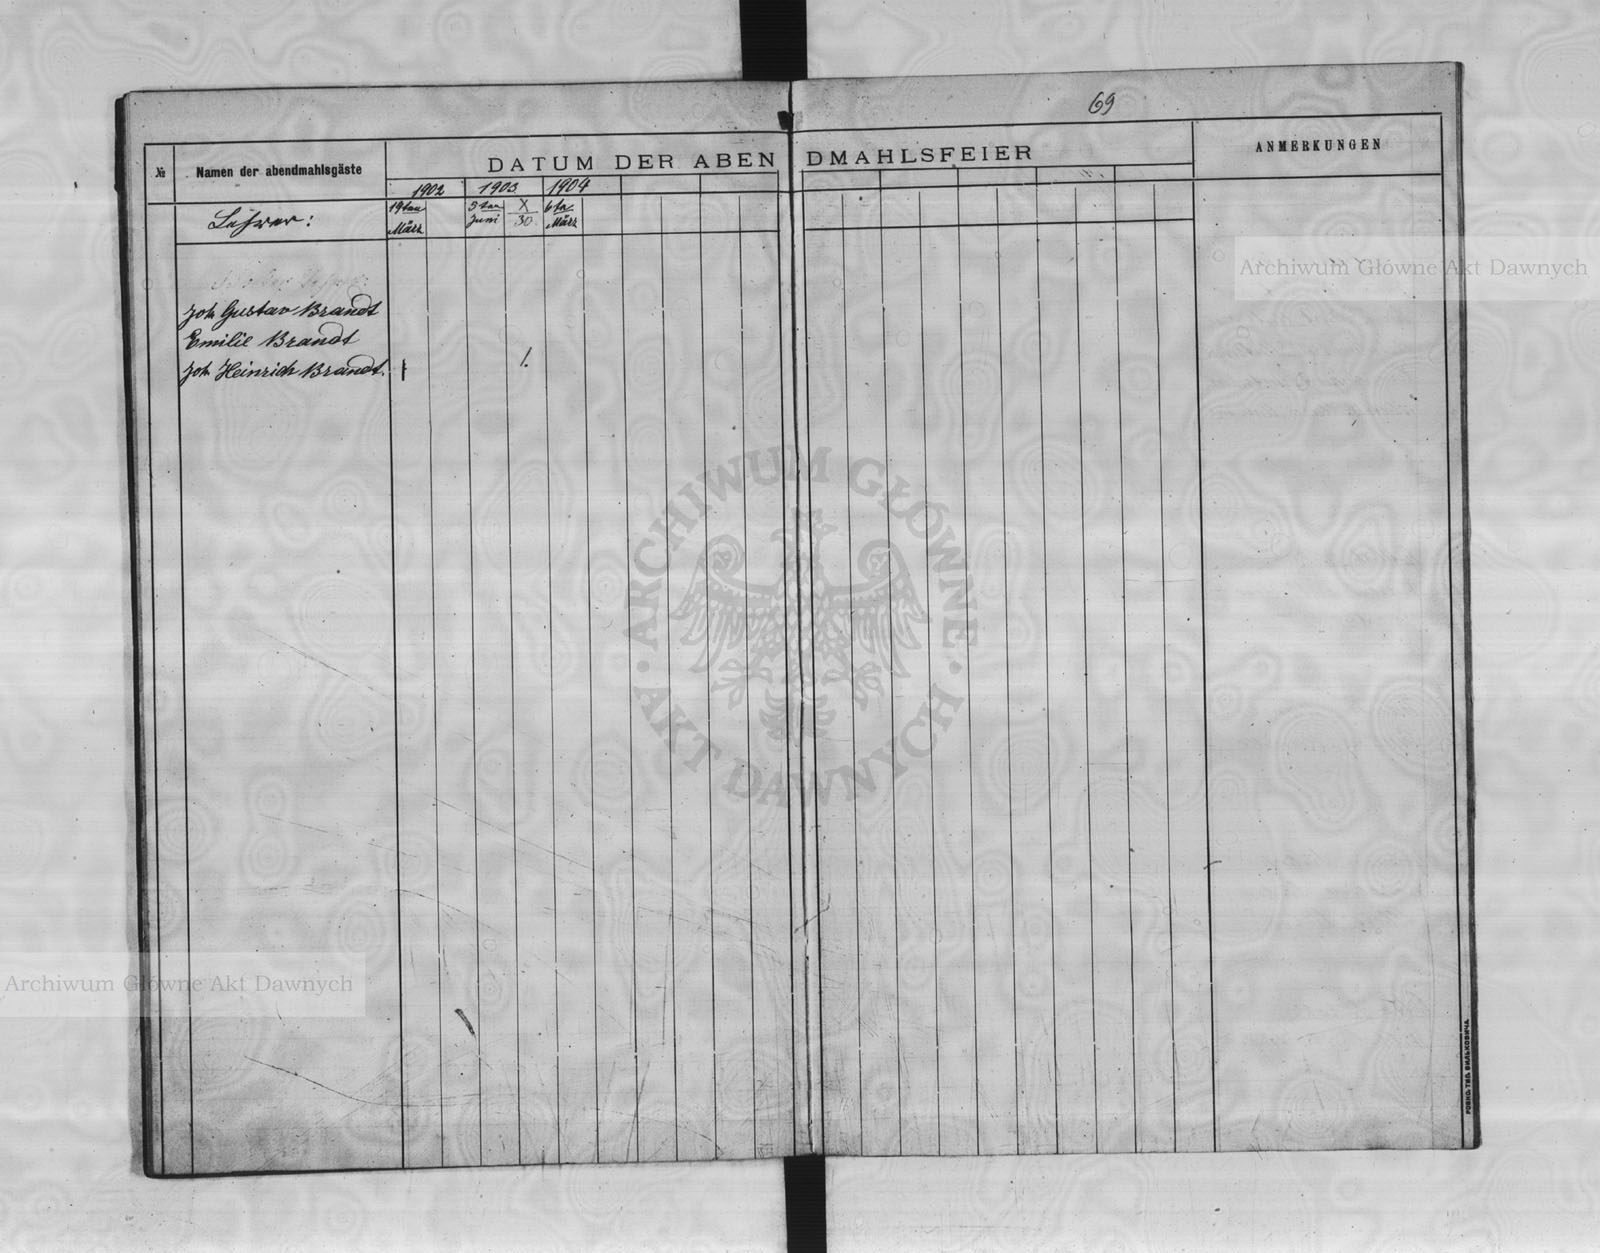 69
№ Namen der abendmahlsgäste DATUM DER ABENDMAHLSFEIER ANMERKUNGEN
1902 1903 1904
Lehrer: 19ten März Juni X 30 6ten März
Joh Gustav Brandt
Emilie Brandt
Joh Heinrich Brandt. 1 1.
Archiwum Główne Akt Dawnych
ARCHIWUM GŁÓWNE · AKT DAWNYCH ·
Archiwum Główne Akt Dawnych
РОВНО. ТИП. БИЛЬКОВИЧА.